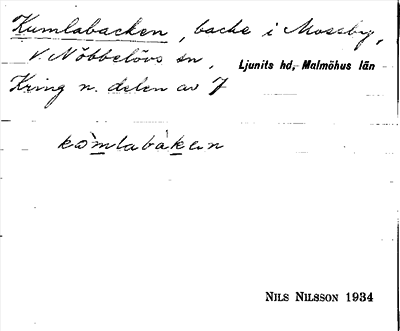 Kumlabacken, backe i Mossby,
V. Nöbbelövs sn, Ljunits hd, Malmöhus län
Kring n. delen av 7
kòmlabàken
NILS NILSSON 1934